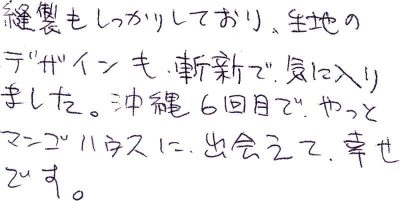 縫製もしっかりしており、生地の
デザインも、斬新で、気に入り
ました。沖縄6回目で、やっと
マンゴハウスに、出会えて、幸せ
です。